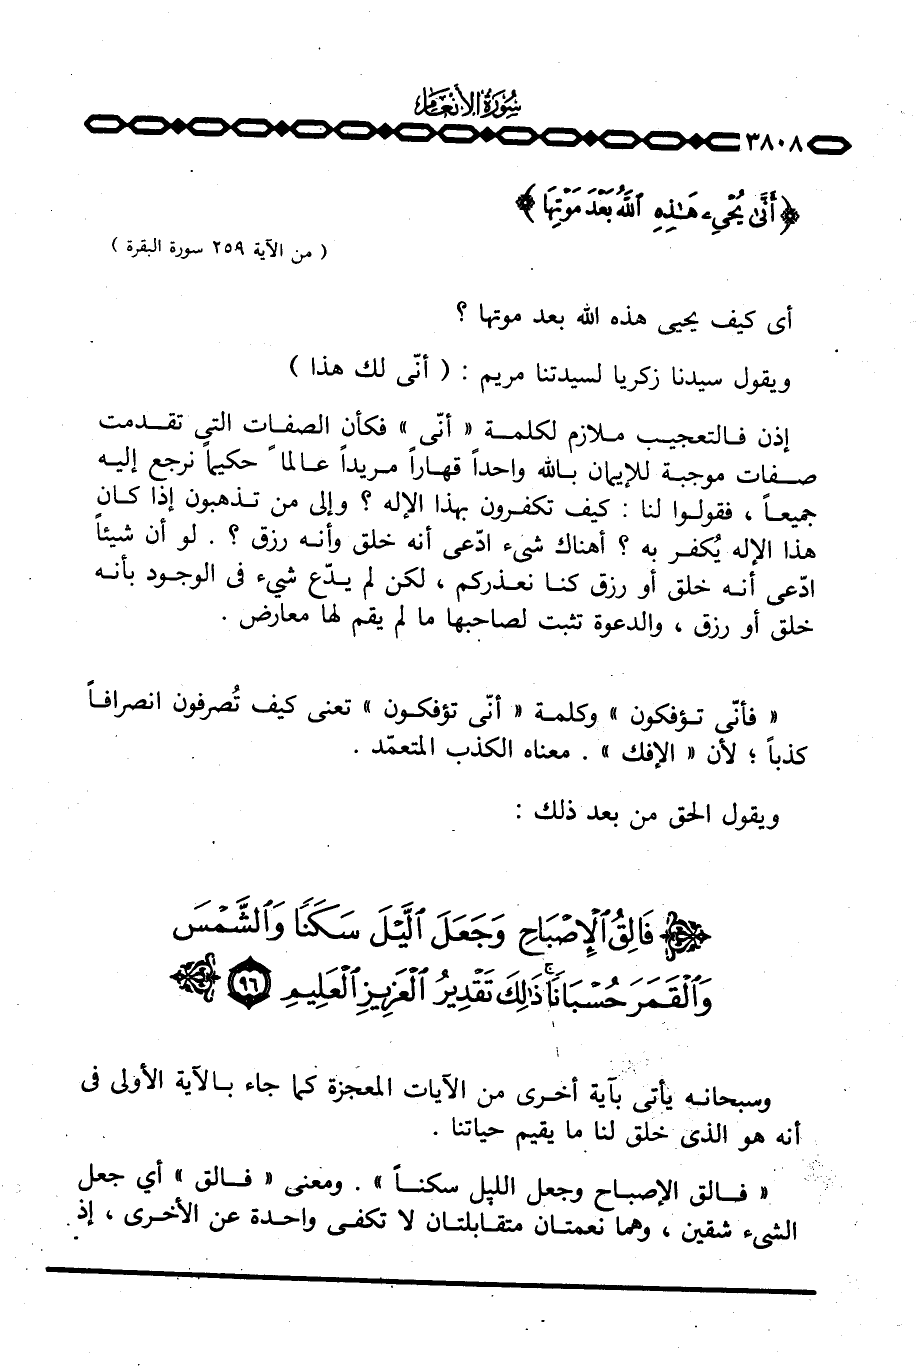 سُورَةُ الأَنْعَام
٣٨٠٨
﴿ أَنَّىٰ يُحْيِۦ هَـٰذِهِ ٱللَّهُ بَعْدَ مَوْتِهَا ﴾
( من الآية ٢٥٩ سورة البقرة )
أى كيف يحيى هذه الله بعد موتها ؟
ويقول سيدنا زكريا لسيدتنا مريم : ( أنّى لك هذا )
إذن فالتعجيب ملازم لكلمة « أنّى » فكأن الصفات التى تقدمت
صفات موجبة للإيمان بالله واحداً قهاراً مريداً عالماً حكيماً نرجع إليه
جميعاً ، فقولوا لنا : كيف تكفرون بهذا الإله ؟ وإلى من تذهبون إذا كان
هذا الإله يُكفر به ؟ أهناك شىء ادّعى أنه خلق وأنه رزق ؟ . لو أن شيئاً
ادّعى أنه خلق أو رزق كنا نعذركم ، لكن لم يدّع شيء فى الوجود بأنه
خلق أو رزق ، والدعوة تثبت لصاحبها ما لم يقم لها معارض .
« فأنّى تؤفكون » وكلمة « أنّى تؤفكون » تعنى كيف تُصرفون انصرافاً
كذباً ؛ لأن « الإفك » . معناه الكذب المتعمّد .
ويقول الحق من بعد ذلك :
فَالِقُ ٱلْإِصْبَاحِ وَجَعَلَ ٱلَّيْلَ سَكَنًا وَٱلشَّمْسَ
وَٱلْقَمَرَ حُسْبَانًا ۚ ذَٰلِكَ تَقْدِيرُ ٱلْعَزِيزِ ٱلْعَلِيمِ ٩٦
وسبحانه يأتى بآية أخرى من الآيات المعجزة كما جاء بالآية الأولى فى
أنه هو الذى خلق لنا ما يقيم حياتنا .
« فالق الإصباح وجعل الليل سكناً » . ومعنى « فالق » أي جعل
الشىء شقين ، وهما نعمتان متقابلتان لا تكفى واحدة عن الأخرى ، إذ